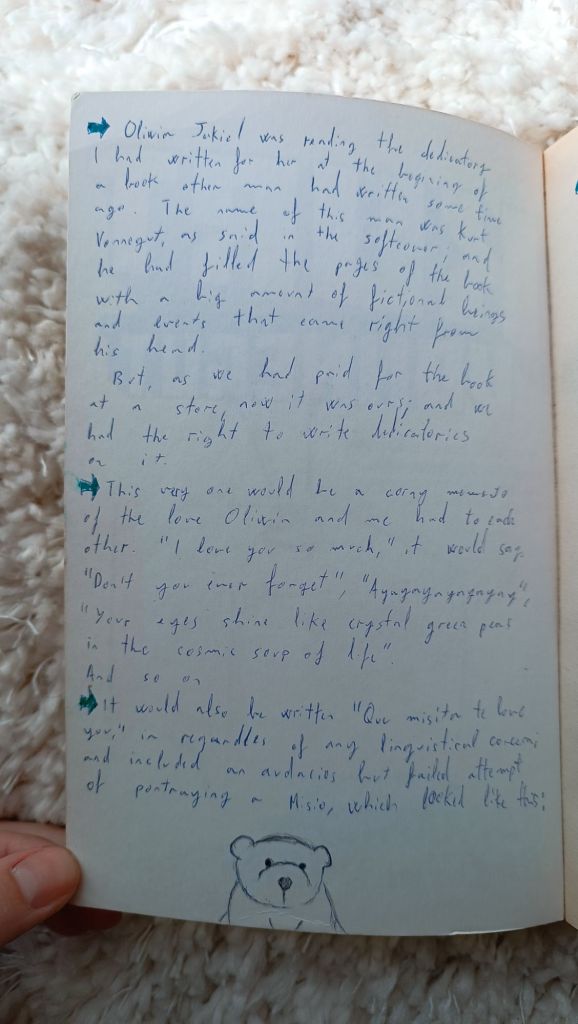 Oliwia Jakiel was reading the dedicatory
I had written for her at the begining of
a book other man had written some time
ago. The name of this man was Kurt
Vonnegut, as said in the softcover; and
he had filled the pages of the book
with a big amount of fictional beings
and events that came right from
his head.
But, as we had paid for the book
at a store, now it was ours; and we
had the right to write dedicatories
on it.
This very one would be a corny memento
of the love Oliwia and me had to each
other. "I love you so much," it would say.
"Don't you ever forget", "Ayayayayayayay",
"Your eyes shine like crystal green peas
in the cosmic soup of life".
And so on
It would also be written "Que misito te love
you," in regardles of any linguistical concerns
and included an audacios but failed attempt
of portraying a Misio, which looked like this: